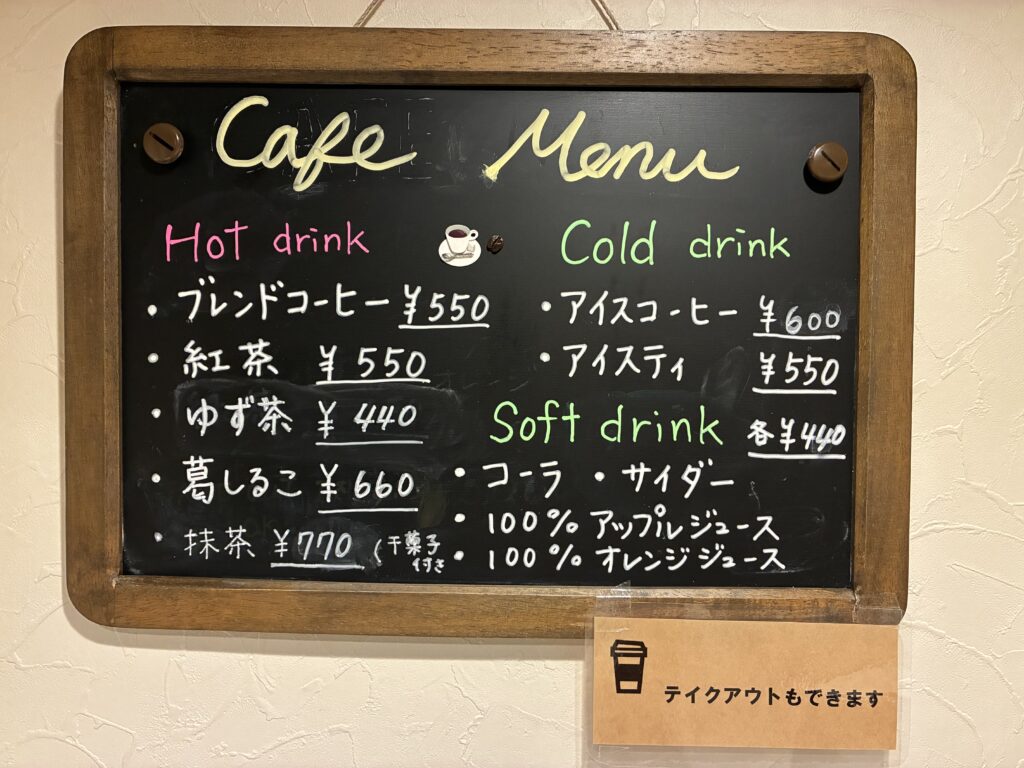 Cafe Menu
Hot drink
・ブレンドコーヒー ¥550
・紅茶 ¥550
・ゆず茶 ¥440
・葛しるこ ¥660
・抹茶 ¥770 (干菓子
付き
Cold drink
・アイスコーヒー ¥600
・アイスティ ¥550
Soft drink 各¥440
・コーラ ・サイダー
・100% アップルジュース
・100% オレンジジュース
テイクアウトもできます